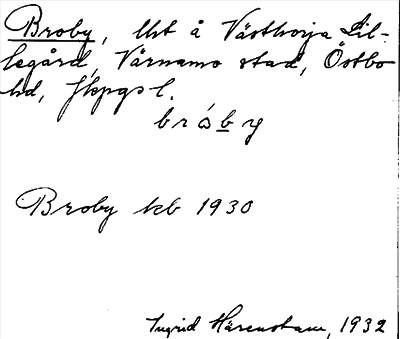 Broby, lht å Västhorja Lil-
legård, Värnamo stad, Östbo
hd, Jkpgs l.
bro̍by
Broby kb 1930
Ingrid Härenstam, 1932